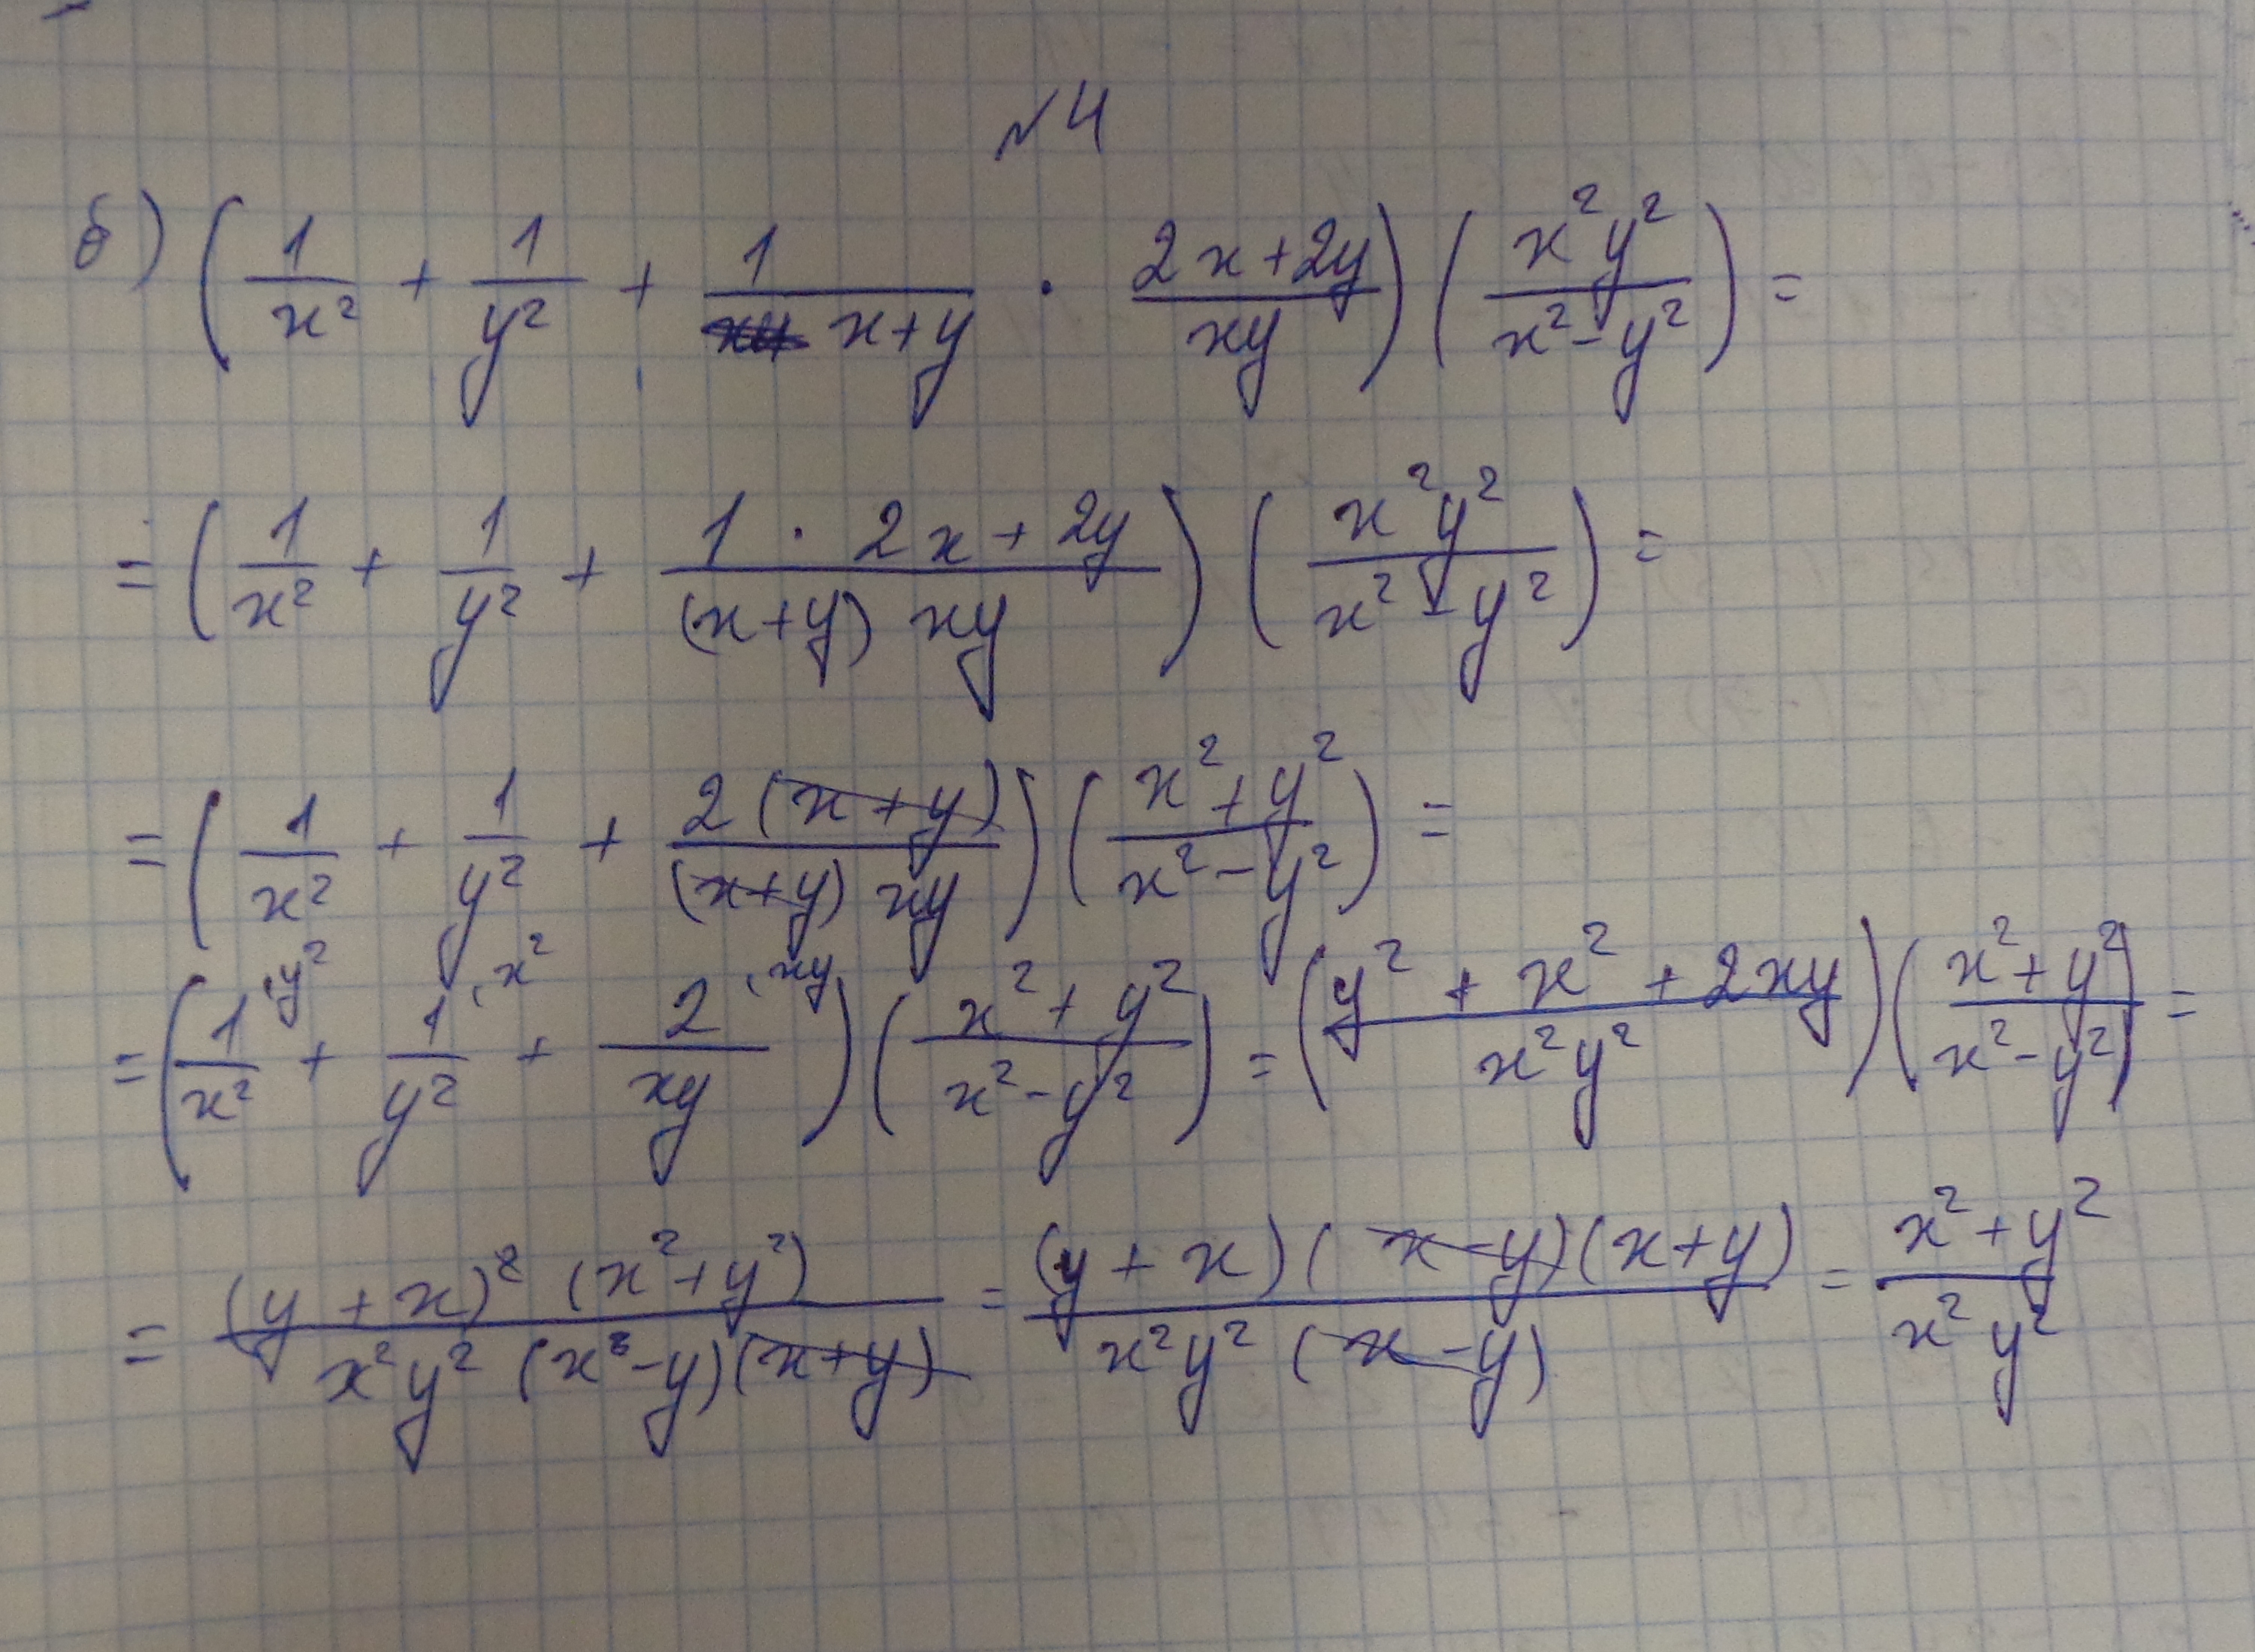 №4
б) (1/x² + 1/y² + 1/(x+y) · (2x+2y)/(xy)) (x²y²/(x²-y²)) =
= (1/x² + 1/y² + (1 · 2x+2y)/((x+y) xy)) (x²y²/(x²-y²)) =
= (1/x² + 1/y² + 2(x+y)/((x+y) xy)) ((x²+y²)/(x²-y²)) =
= (1·y²/x² + 1·x²/y² + 2·xy/(xy)) ((x²+y²)/(x²-y²)) = ((y²+x²+2xy)/(x²y²)) ((x²+y²)/(x²-y²)) =
= ((y+x)² (x²+y²))/(x²y² (x²-y)(x+y)) = ((y+x)(x-y)(x+y))/(x²y² (x-y)) = (x²+y²)/(x²y²)